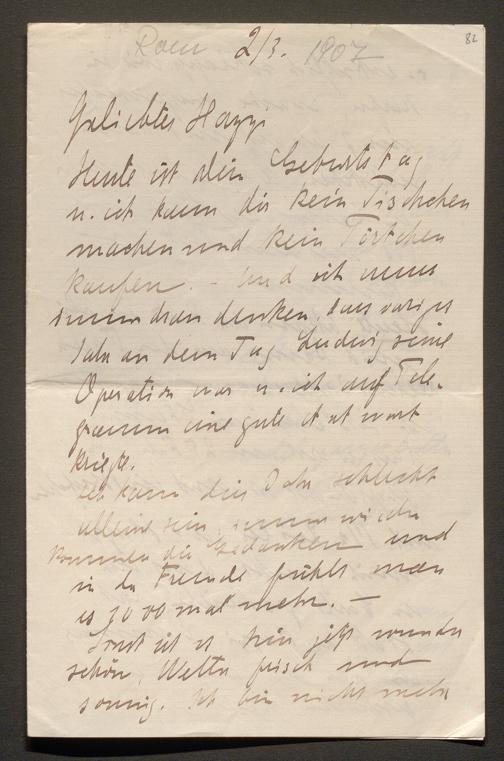 Rom 2/3. 1907
82
Geliebtes Hazzi
Heute ist dein Geburtstag
u. ich kann dir kein Tischchen
machen und kein Törtchen
kaufen. – Und ich muss
immer dran denken, dass voriges
Jahr an dem Tag Ludwig seine
Operation war u. ich auf Tele-
gramm eine gute Antwort
kriegte.
Ich kann dies Jahr schlecht
alleine sein, immer wieder
kommen die Gedanken und
in der Fremde fühlt man
es 1000 mal mehr. –
Sonst ist es hier jetzt wunder
schön, Wetter frisch und
sonnig. Ich bin nicht mehr